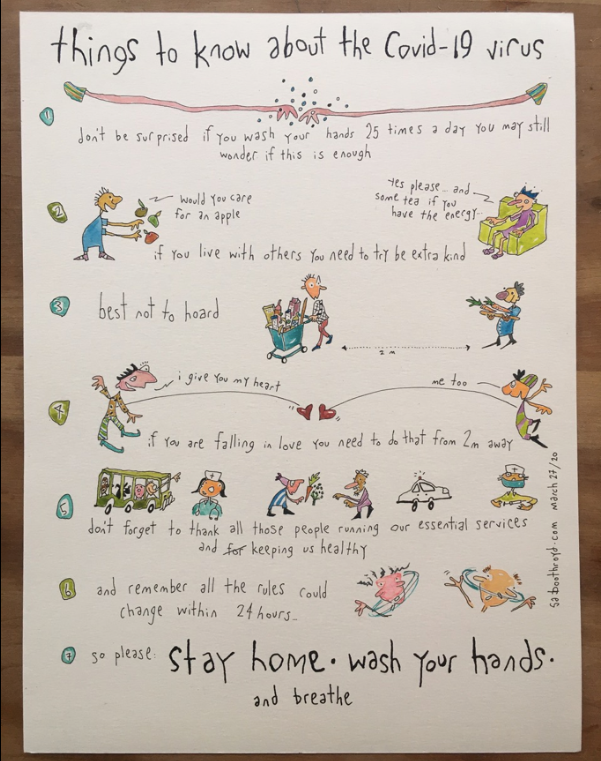 things to know about the Covid-19 virus
1
don't be surprised if you wash your hands 25 times a day you may still
wonder if this is enough
2
would you care
for an apple
yes please... and
some tea if you
have the energy...
if you live with others you need to try be extra kind
3
best not to hoard
2 m
4
i give you my heart
me too
if you are falling in love you need to do that from 2m away
5
don't forget to thank all those people running our essential services
and for keeping us healthy
6
and remember all the rules could
change within 24 hours...
7
so please: stay home. wash your hands.
and breathe
saboothroyd.com march 27/20